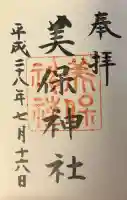 奉拝
美保神社
平成二十八年七月十六日